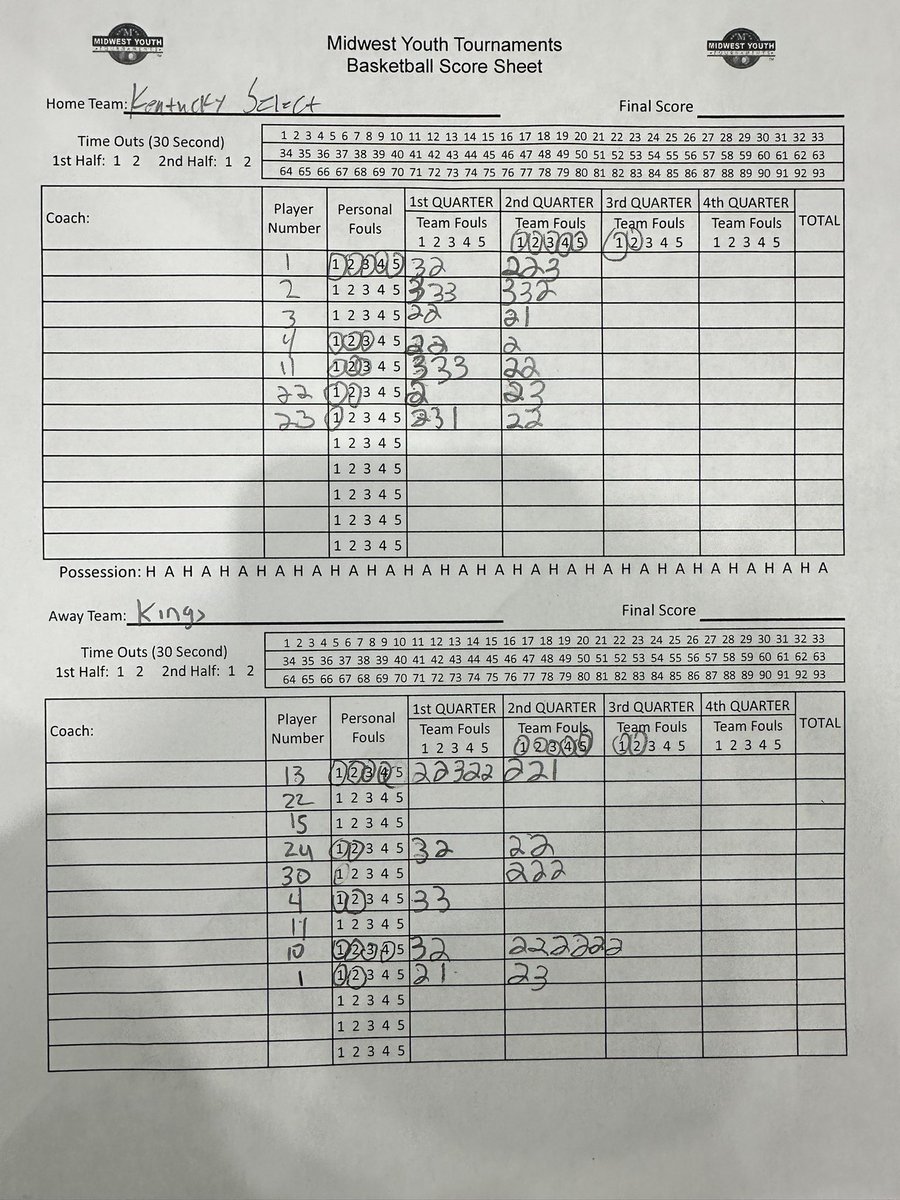 MIDWEST YOUTH
TOURNAMENTS
Midwest Youth Tournaments
Basketball Score Sheet
MIDWEST YOUTH
TOURNAMENTS
Home Team: Kentucky Select Final Score
Time Outs (30 Second)
1st Half: 1 2 2nd Half: 1 2
1 2 3 4 5 6 7 8 9 10 11 12 13 14 15 16 17 18 19 20 21 22 23 24 25 26 27 28 29 30 31 32 33
34 35 36 37 38 39 40 41 42 43 44 45 46 47 48 49 50 51 52 53 54 55 56 57 58 59 60 61 62 63
64 65 66 67 68 69 70 71 72 73 74 75 76 77 78 79 80 81 82 83 84 85 86 87 88 89 90 91 92 93
Coach: Player Number Personal Fouls 1st QUARTER 2nd QUARTER 3rd QUARTER 4th QUARTER TOTAL
Team Fouls Team Fouls Team Fouls Team Fouls
1 2 3 4 5 1 2 3 4 5 1 2 3 4 5 1 2 3 4 5
1 1 2 3 4 5 32 223
2 1 2 3 4 5 333 332
3 1 2 3 4 5 22 21
4 1 2 3 4 5 22 2
11 1 2 3 4 5 333 22
22 1 2 3 4 5 2 23
23 1 2 3 4 5 231 22
1 2 3 4 5
1 2 3 4 5
1 2 3 4 5
1 2 3 4 5
1 2 3 4 5
Possession: H A H A H A H A H A H A H A H A H A H A H A H A H A H A H A H A H A H A H A
Away Team: Kings Final Score
Time Outs (30 Second)
1st Half: 1 2 2nd Half: 1 2
1 2 3 4 5 6 7 8 9 10 11 12 13 14 15 16 17 18 19 20 21 22 23 24 25 26 27 28 29 30 31 32 33
34 35 36 37 38 39 40 41 42 43 44 45 46 47 48 49 50 51 52 53 54 55 56 57 58 59 60 61 62 63
64 65 66 67 68 69 70 71 72 73 74 75 76 77 78 79 80 81 82 83 84 85 86 87 88 89 90 91 92 93
Coach: Player Number Personal Fouls 1st QUARTER 2nd QUARTER 3rd QUARTER 4th QUARTER TOTAL
Team Fouls Team Fouls Team Fouls Team Fouls
1 2 3 4 5 1 2 3 4 5 1 2 3 4 5 1 2 3 4 5
13 1 2 3 4 5 22322 221
22 1 2 3 4 5
15 1 2 3 4 5
24 1 2 3 4 5 32 22
30 1 2 3 4 5 222
4 1 2 3 4 5 33
11 1 2 3 4 5
10 1 2 3 4 5 32 222222
1 1 2 3 4 5 21 23
1 2 3 4 5
1 2 3 4 5
1 2 3 4 5